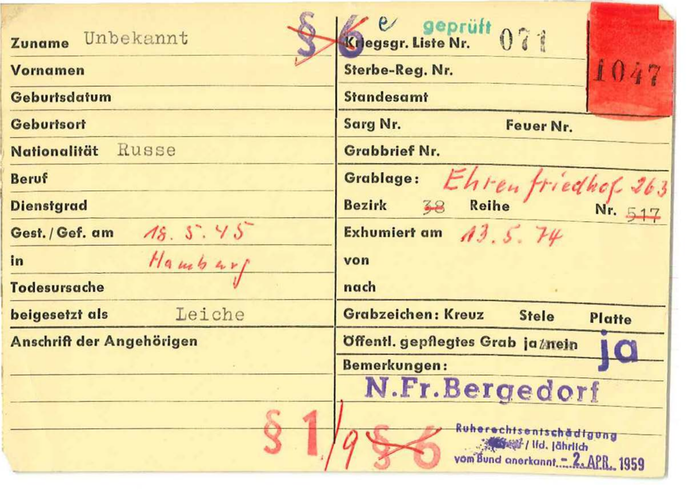 Zuname Unbekannt
Vornamen
Geburtsdatum
Geburtsort
Nationalität Russe
Beruf
Dienstgrad
Gest./Gef. am 18.5.45
in Hamburg
Todesursache
beigesetzt als Leiche
Anschrift der Angehörigen
§ 6 e geprüft
Kriegsgr. Liste Nr. 071
1047
Sterbe-Reg. Nr.
Standesamt
Sarg Nr. Feuer Nr.
Grabbrief Nr.
Grablage: Ehrenfriedhof 263
Bezirk 38 Reihe Nr. 517
Exhumiert am 13.5.74
von
nach
Grabzeichen: Kreuz Stele Platte
Öffentl. gepflegtes Grab ja/nein ja
Bemerkungen:
N.Fr.Bergedorf
§ 1/9 § 6
Ruherechtsentschädigung
/ lfd. jährlich
vom Bund anerkannt - 2. APR. 1959